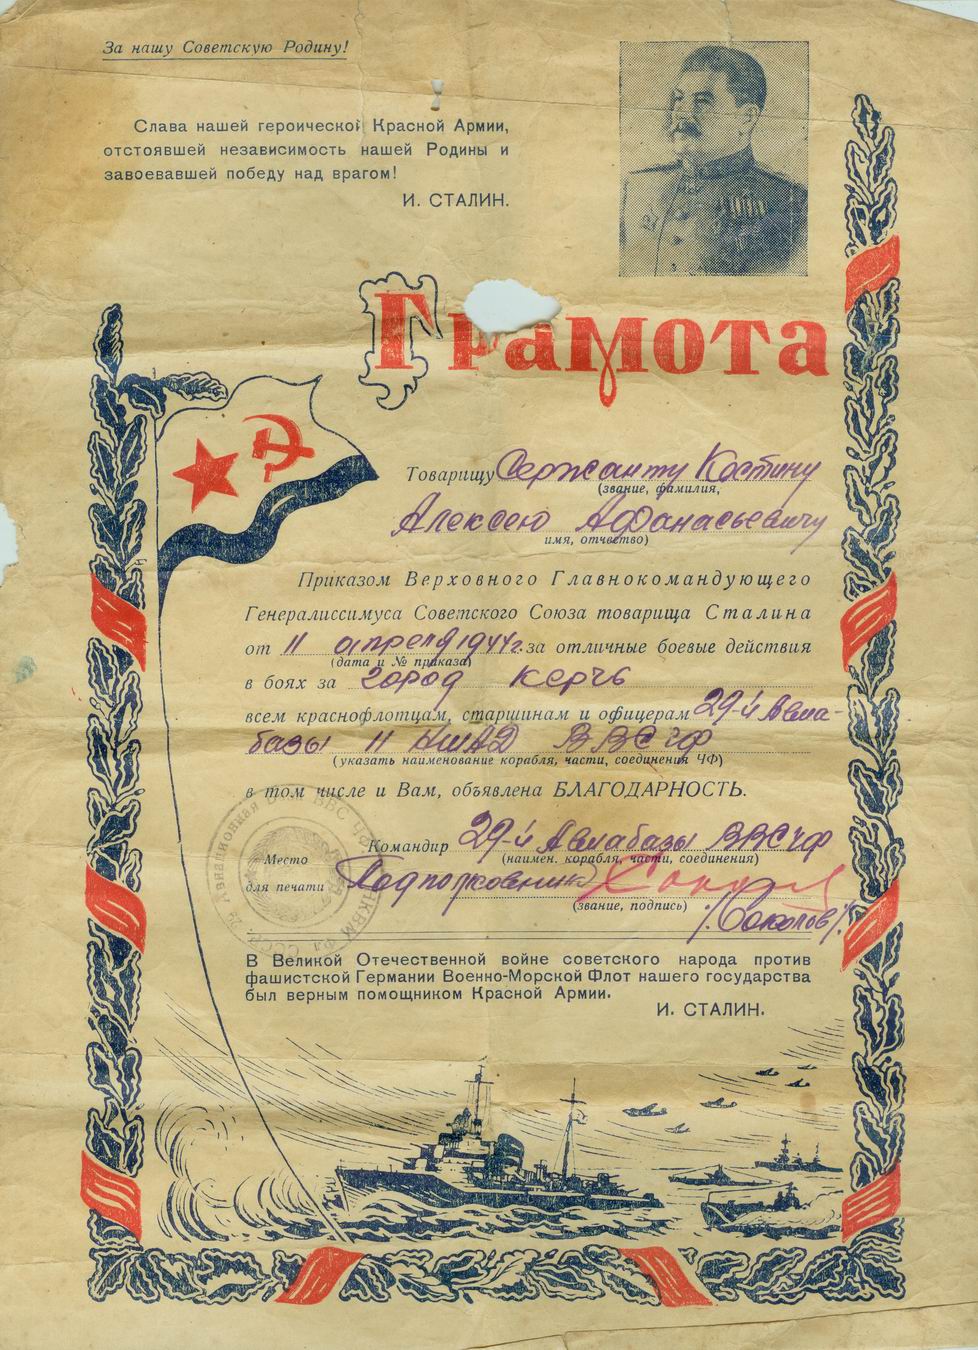 За нашу Советскую Родину!
Слава нашей героической Красной Армии,
отстоявшей независимость нашей Родины и
завоевавшей победу над врагом!
И. СТАЛИН.
Грамота
Товарищу Сержанту Костину
(звание, фамилия,
Алексею Афанасьевичу
имя, отчество)
Приказом Верховного Главнокомандующего
Генералиссимуса Советского Союза товарища Сталина
от 11 апреля 1944г. за отличные боевые действия
(дата и № приказа)
в боях за город Керчь
всем краснофлотцам, старшинам и офицерам 29-й Авиа-
базы 11 НШАД ВВС ЧФ
(указать наименование корабля, части, соединения ЧФ)
в том числе и Вам, объявлена БЛАГОДАРНОСТЬ.
Командир 29-й Авиабазы ВВС ЧФ
(наимен. корабля, части, соединения)
Место
для печати
Подполковник
(звание, подпись)
/Соколов/.
В Великой Отечественной войне советского народа против
фашистской Германии Военно-Морской Флот нашего государства
был верным помощником Красной Армии.
И. СТАЛИН.